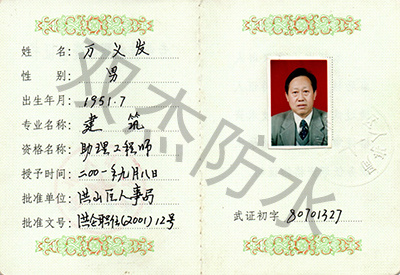 姓 名：万义发
性 别：男
出生年月：1951.7
专业名称：建筑
资格名称：助理工程师
授予时间：二00一年九月八日
批准单位：洪山区人事局
批准文号：洪(2001)12号
武证初字 80701327
双杰防水